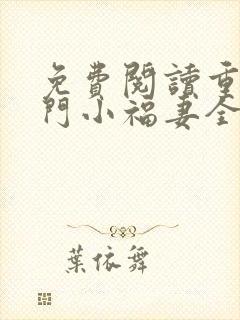 免費閱讀重
門小福妻全
葉依舞